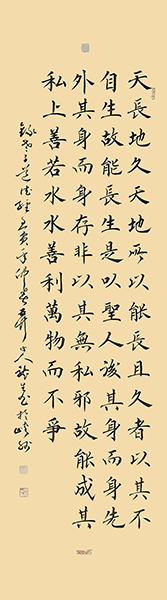 天長地久天地所以能長且久者以其不
自生故能長生是以聖人後其身而身先
外其身而身存非以其無私邪故能成其
私上善若水水善利萬物而不爭
錄老子道德經壬寅年仲春